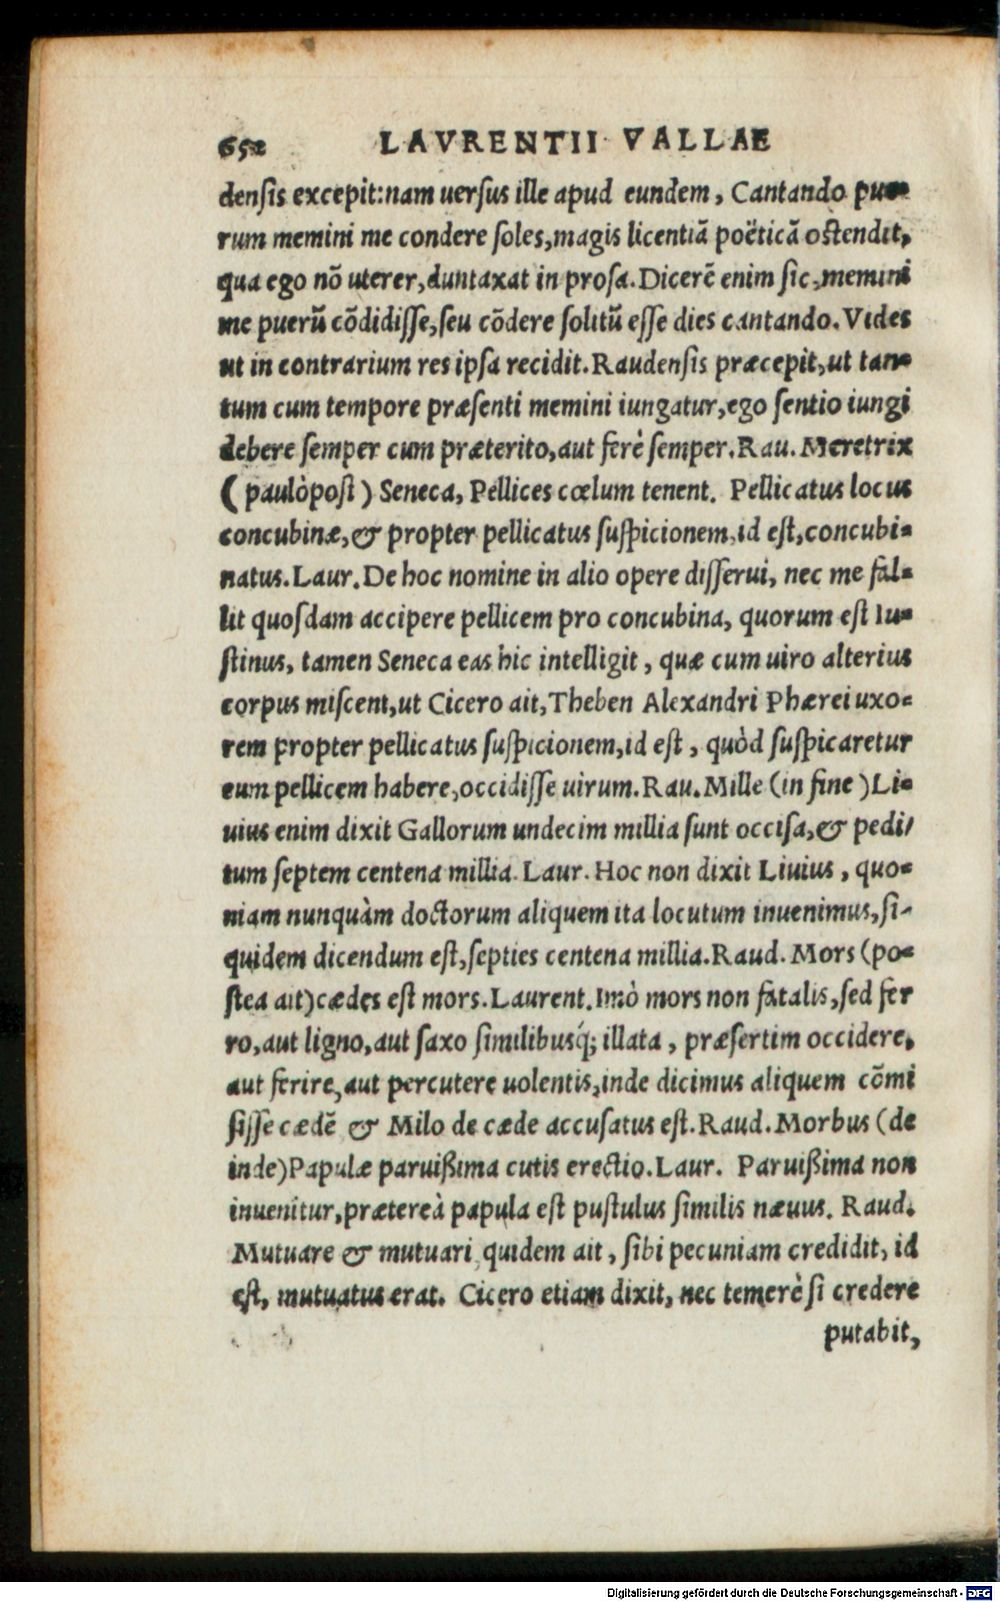 652 LAVRENTII VALLAE
densis excepit:nam uersus ille apud eundem, Cantando pue-
rum memini me condere soles,magis licentiā poëticā ostendit,
qua ego nō uterer,duntaxat in prosa.Dicerē enim sic,memini
me puerū cōdidisse,seu cōdere solitū esse dies cantando.Vides
ut in contrarium res ipsa recidit.Raudensis præcepit,ut tan-
tum cum tempore præsenti memini iungatur,ego sentio iungi
debere semper cum præterito,aut ferè semper.Rau.Meretrix
(paulòpost) Seneca, Pellices cœlum tenent. Pellicatus locus
concubinæ,& propter pellicatus suspicionem,id est,concubi-
natus.Laur.De hoc nomine in alio opere disserui, nec me fal-
lit quosdam accipere pellicem pro concubina, quorum est Iu-
stinus, tamen Seneca eas hic intelligit, quæ cum uiro alterius
corpus miscent,ut Cicero ait,Theben Alexandri Phærei uxo-
rem propter pellicatus suspicionem,id est, quòd suspicaretur
eum pellicem habere,occidisse uirum.Rau.Mille (in fine) Li-
uius enim dixit Gallorum undecim millia sunt occisa,& pedi/
tum septem centena millia. Laur. Hoc non dixit Liuius, quo-
niam nunquàm doctorum aliquem ita locutum inuenimus,si-
quidem dicendum est,septies centena millia.Raud. Mors (po-
stea ait)cædes est mors.Laurent.Imò mors non fatalis,sed fer
ro,aut ligno,aut saxo similibusq́; illata, præsertim occidere,
aut ferire,aut percutere uolentis,inde dicimus aliquem cōmi
sisse cædē & Milo de cæde accusatus est.Raud.Morbus (de
inde)Papulæ paruißima cutis erectio.Laur. Paruißima non
inuenitur,prætereà papula est pustulus similis næuus. Raud.
Mutuare & mutuari quidem ait, sibi pecuniam credidit, id
est, mutuatus erat. Cicero etiam dixit, nec temerè si credere
putabit,
Digitalisierung gefördert durch die Deutsche Forschungsgemeinschaft - DFG